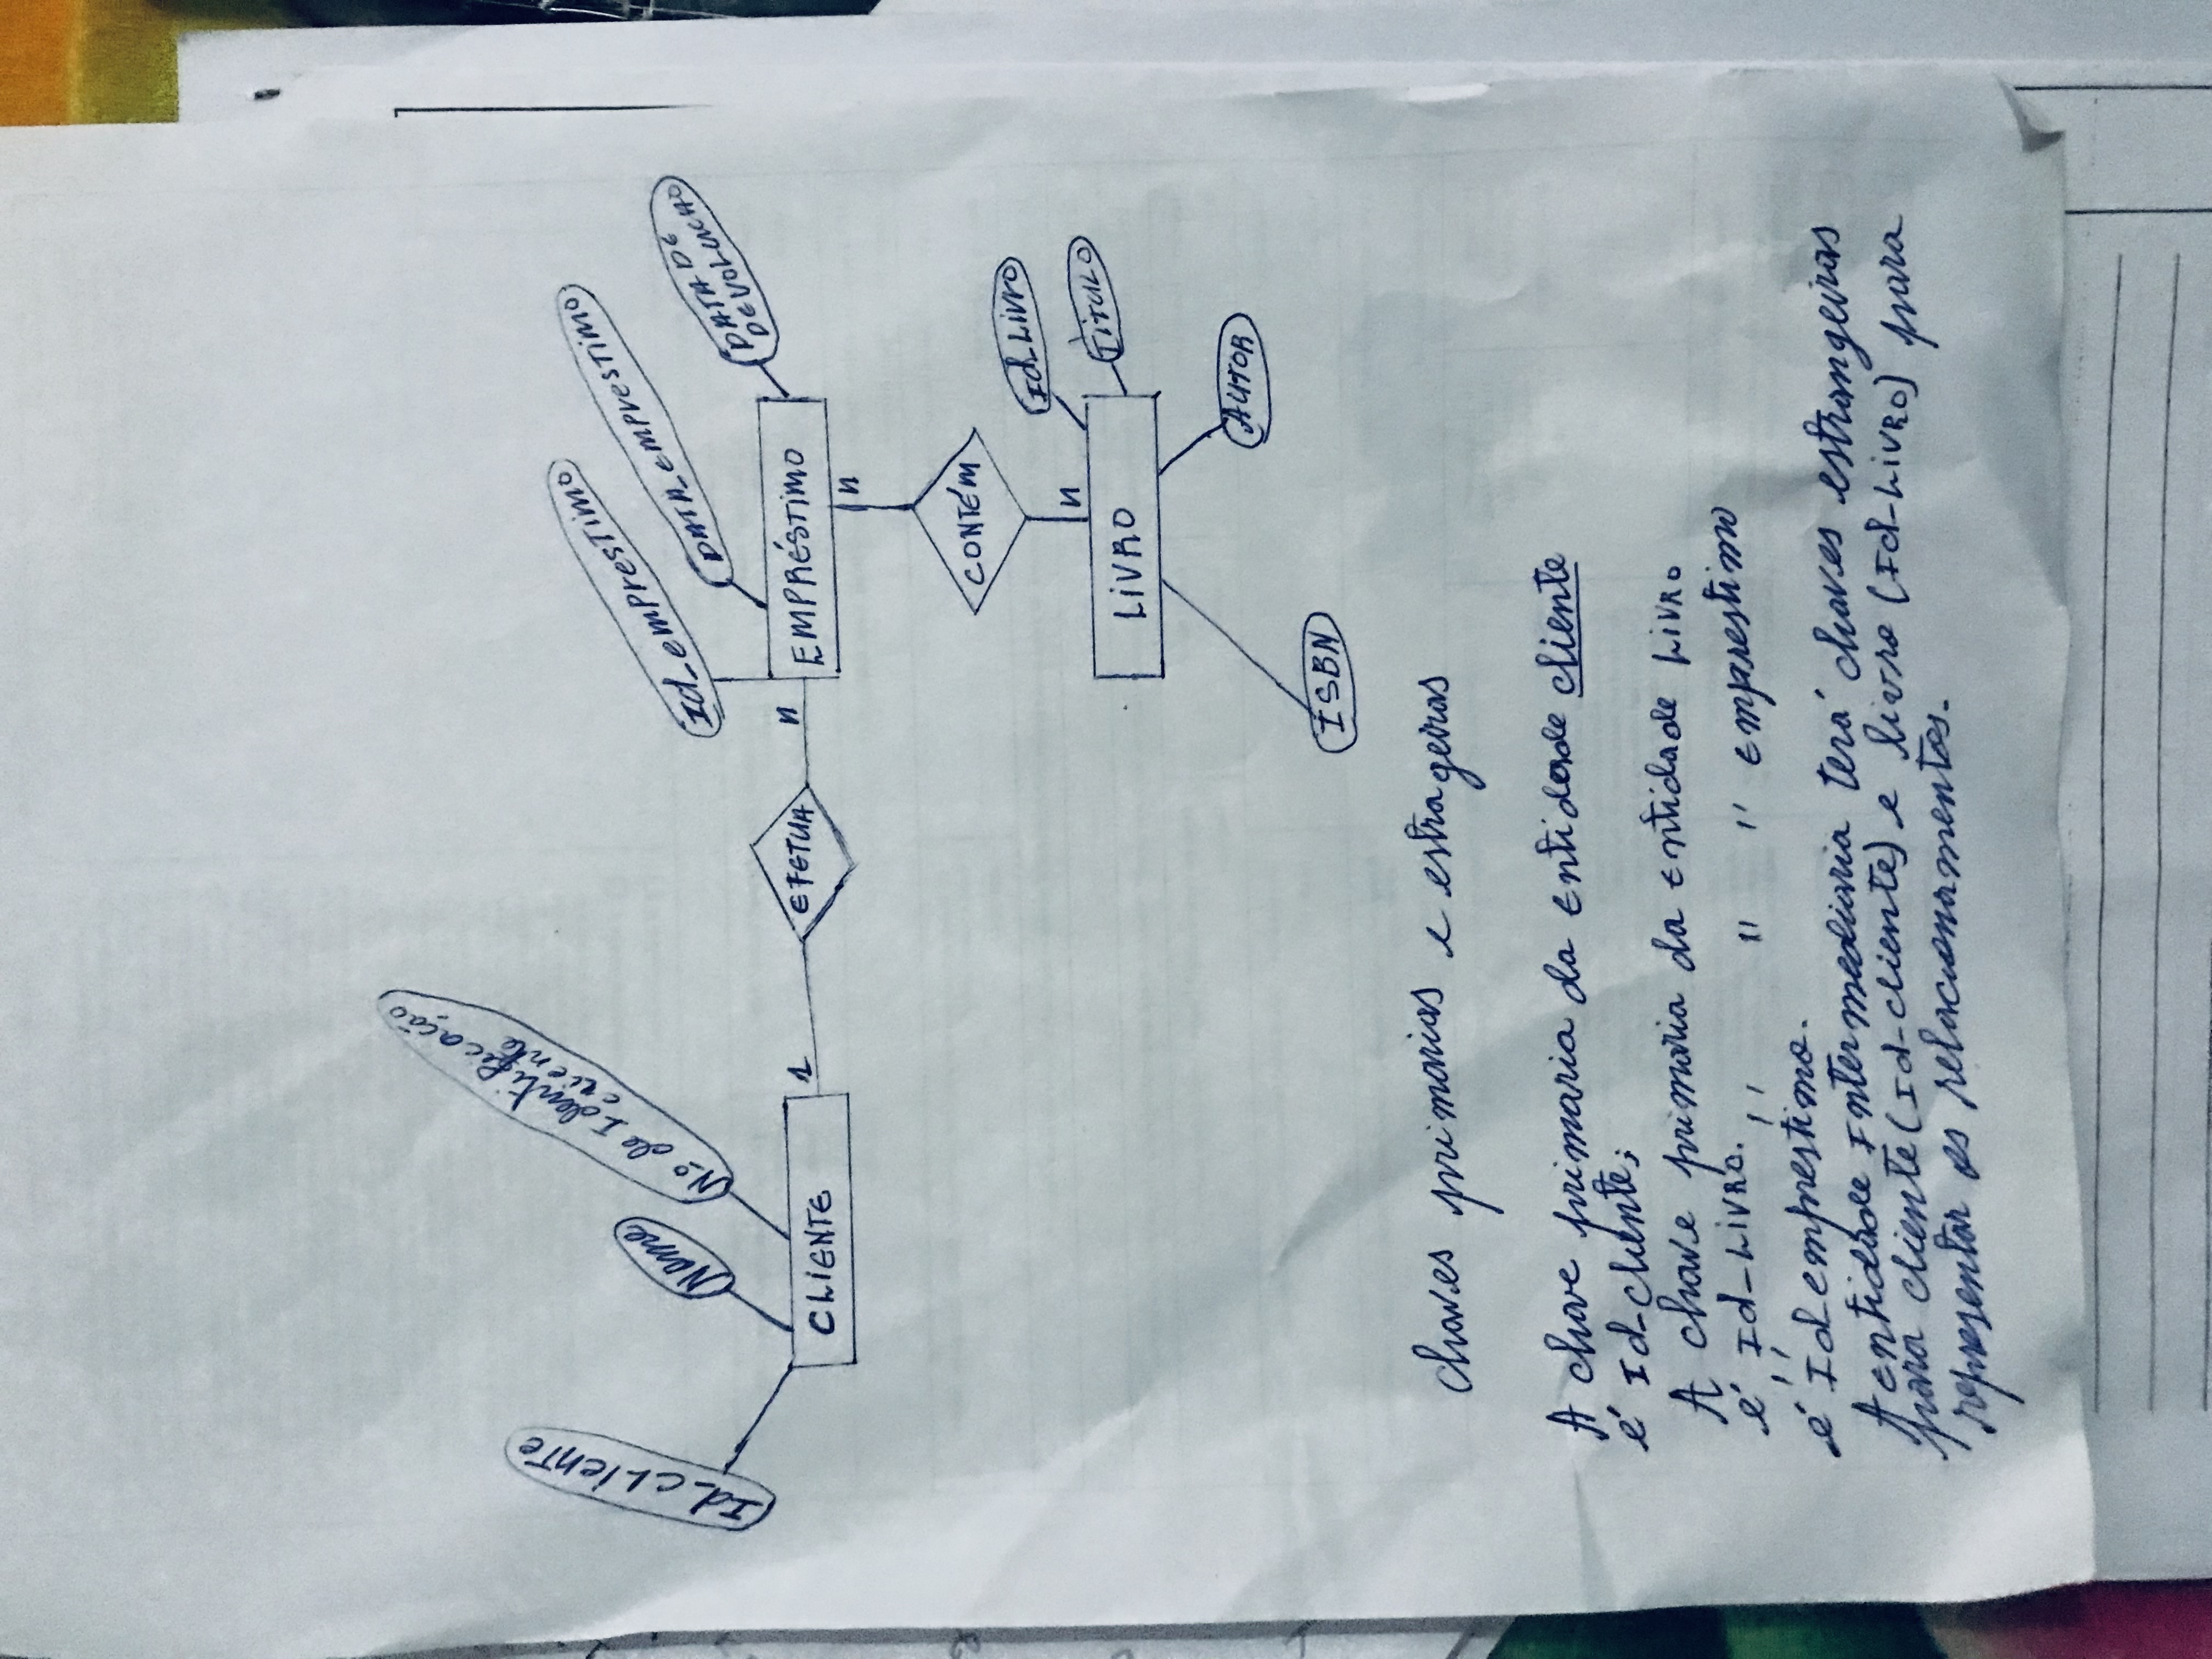 Id_cliente
Nome
Nº de Identificação
criente
CLIENTE
1
EFETUA
n
Id_emprestimo
DATA_emprestimo
DATA DE
DEVOLUCAO
EMPRÉSTIMO
n
CONTÉM
n
LIVRO
Id_Livro
TíTULO
AUTOR
ISBN
chaves primarias e estrageiras
A chave primaria da Entidade cliente
é Id-cliente;
A chave primaria da Entidade LIVRO
é Id-LIVRO.
" " " " " Emprestimo
é Id emprestimo.
A entidade Intermediaria terá chaves estrangeiras
para cliente (Id-cliente) e livro (Id-LIVRO) para
representar os relacionamentos.